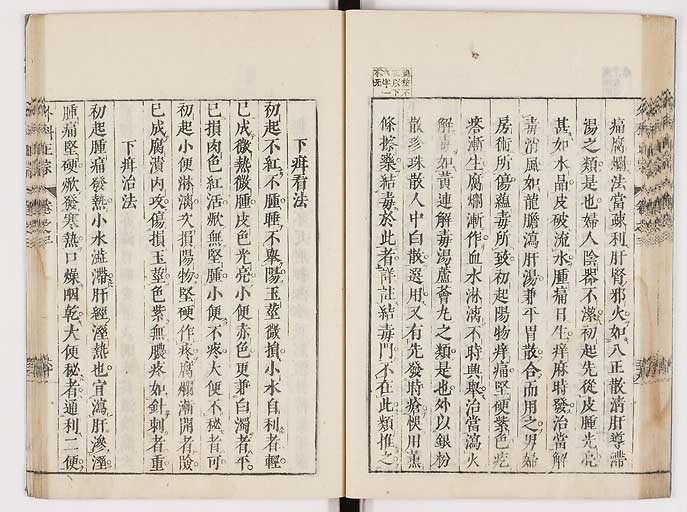 痛腐爛法當疎利肝腎邪火如八正散淸肝導滯
湯之類是也婦人陰器不潔初起先從皮腫光亮
甚如水晶皮破流水腫痛日生痒麻時發治當解
毒消風如龍膽瀉肝湯兼平胃散合而用之男婦
房術所傷蘊毒所致初起陽物痒痛堅硬紫色疙
瘩漸生腐爛漸作血水淋漓不時興舉治當瀉火
解毒如黃連解毒湯蘆薈丸之類是也外以銀粉
散珍珠散人中白散選用又有先發時瘡快用薰
條擦藥結毒於此者詳註結毒門不在此類推之
下疳看法
初起不紅不腫睡不舉陽玉莖微損小水自利者輕
已成微熱微腫皮色光亮小便赤色更兼白濁者平
已損肉色紅活焮無堅腫小便不疼大便不秘者可
初起小便淋漓次損陽物堅硬作疼腐爛漸開者險
已成腐潰內攻傷損玉莖色紫無膿疼如針刺者重
下疳治法
初起腫痛發熱小水澁滯肝經溼熱也宜瀉肝滲溼
腫痛堅硬焮發寒熱口燥咽乾大便秘者通利二便
外科正宗 卷之三